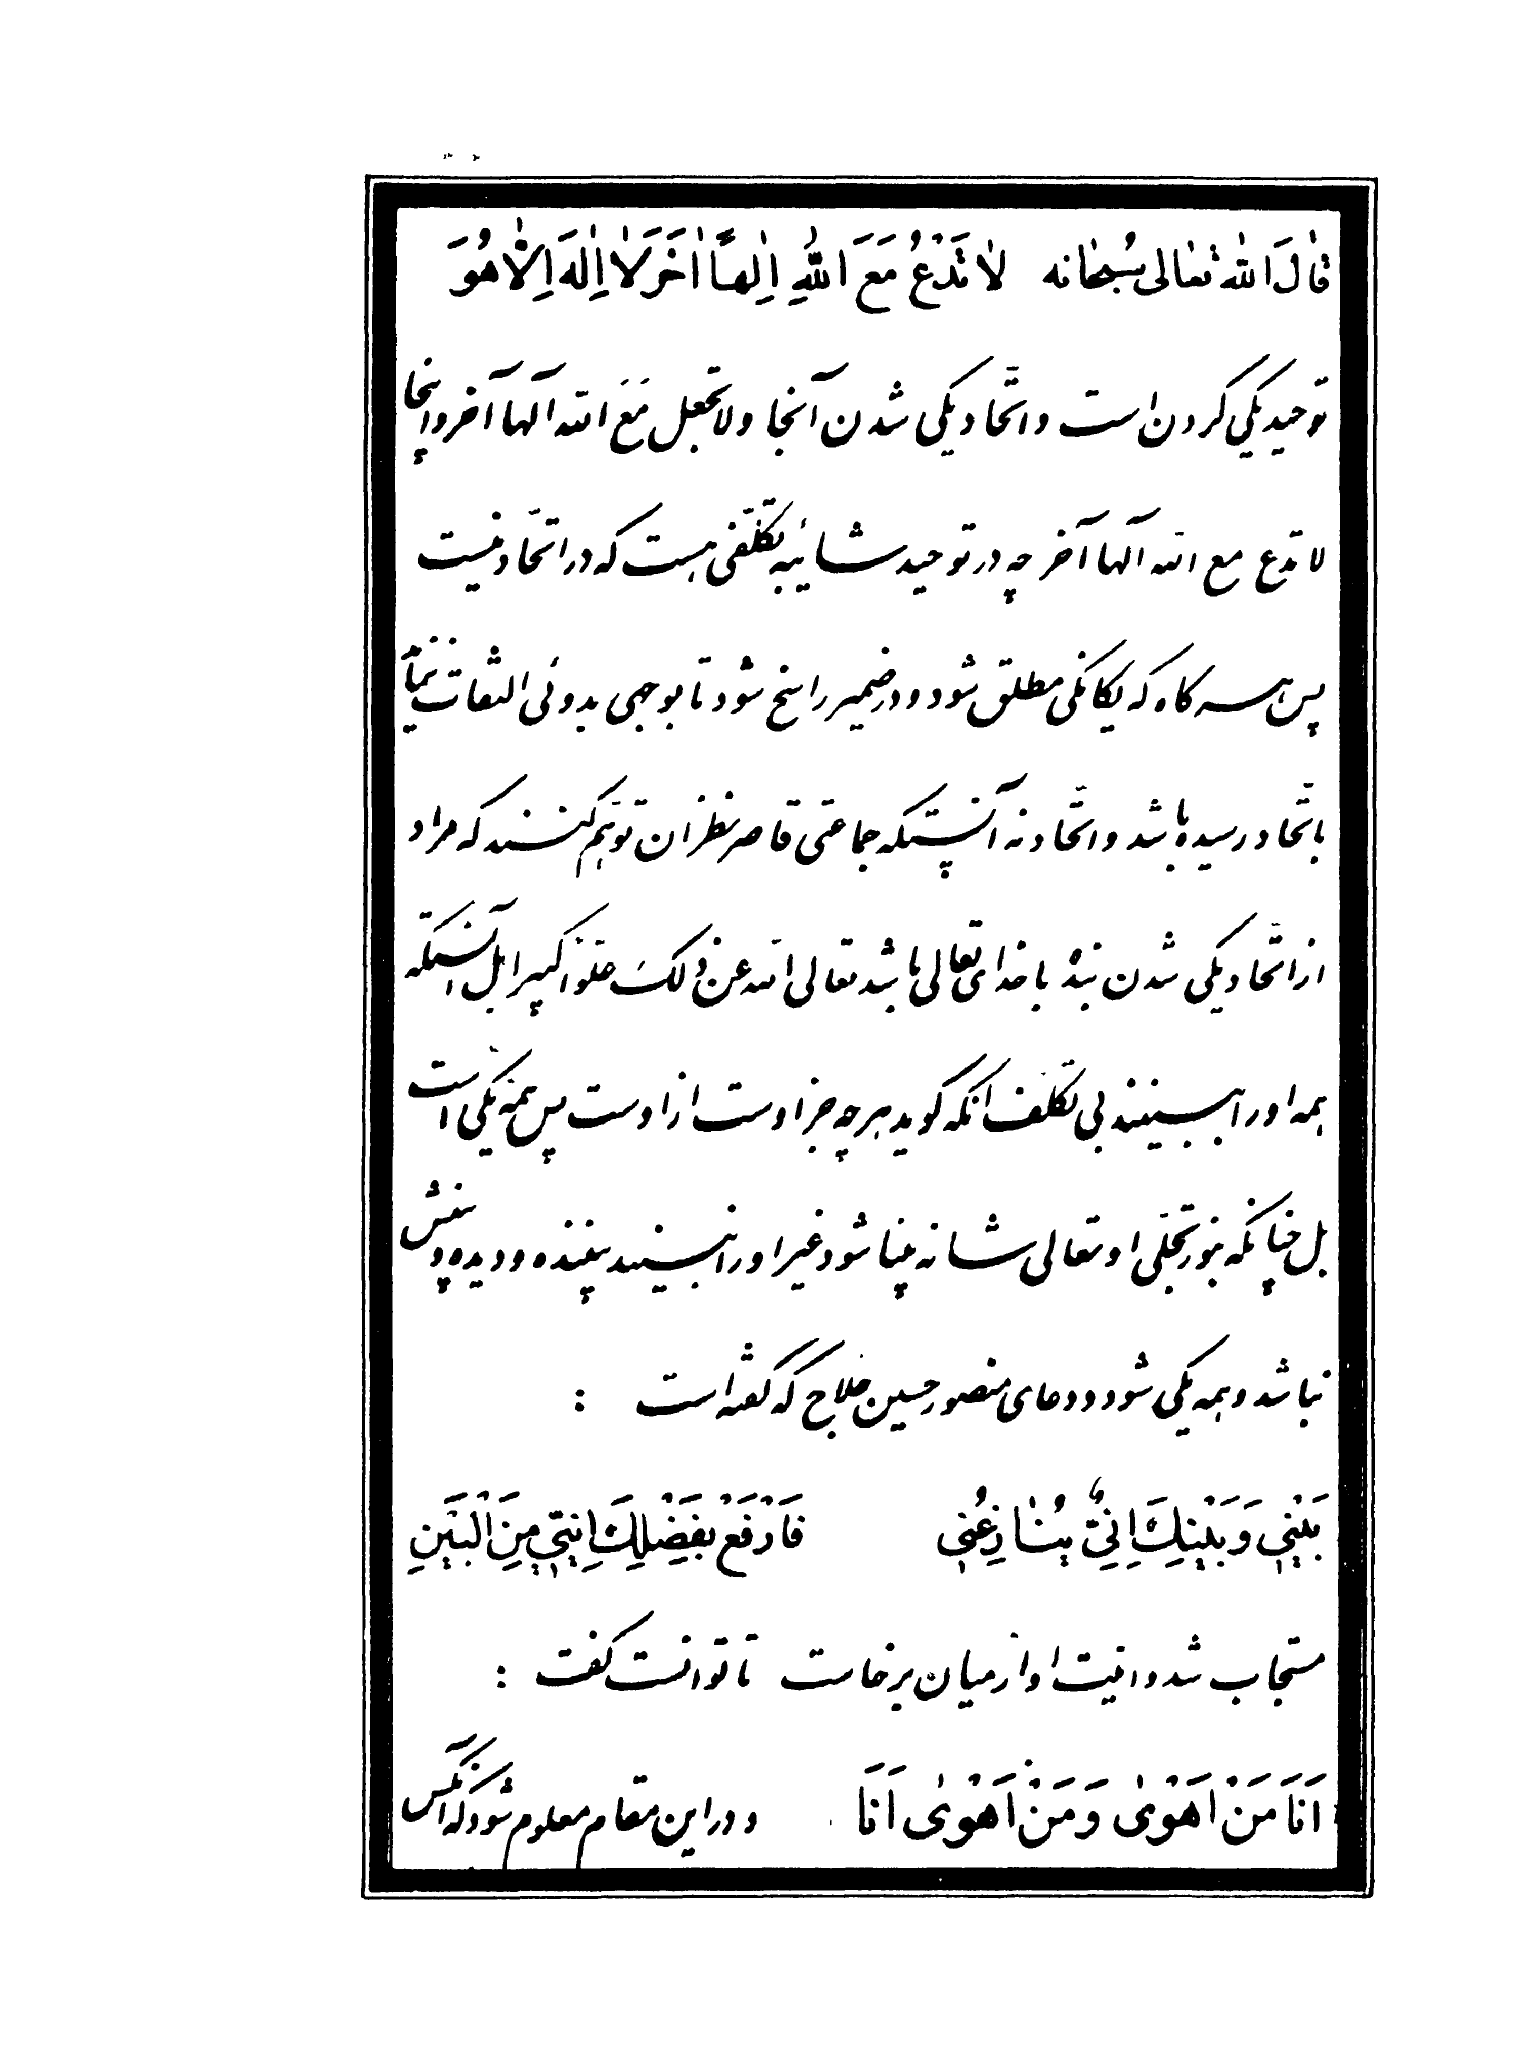 قٰالَ اللّٰه تعٰالی سُبحٰانه لٰا تَدْعُ مَعَ اللّٰهِ اِلٰهاً اٰخَرَ لٰا اِلٰهَ اِلّٰا هُوَ
توحید یکی کردن است و اتّحاد یکی شدن آنجا ولا تجعل مَعَ الله آلها آخر و اینجا
لا تدع مع الله آلها آخر چه در توحید شائبه تکلّفی هست که در اتّحاد نیست
پس هر گاه که یگانگی مطلق شود و در ضمیر راسخ شود تا بوجهی بدوئی التفات ننماید
باتّحاد رسیده باشد و اتّحاد نه آنستکه جماعتی قاصر نظران توهّم کنند که مراد
از اتّحاد یکی شدن بنده با خدای تعالی باشد تعالی الله عن ذلک علّوا کبیرا بل آنستکه
همه او را ببینند بی تکلّف انکه گوید هر چه جز اوست از اوست پس همه یکی است
بل چنانکه بنور تجلّی او تعالی شانه بینا شود غیر او را نبیند بیننده و دیده و بینش
نباشد و همه یکی شود و دعای منصور حسین حلاج که گفته است :
بَیْنِی وَ بَیْنِکَ اِنِیٌّ یُنٰازِعُنِی فَارْفَعْ بِفَضْلِکَ اِنِیّی مِنَ الْبَیْنِ
مستجاب شد و انیت او از میان برخاست تا توانست گفت :
اَنَا مَنْ اَهْوٰی وَ مَنْ اَهْوٰی اَنَا و در این مقام معلوم شود که آنکس